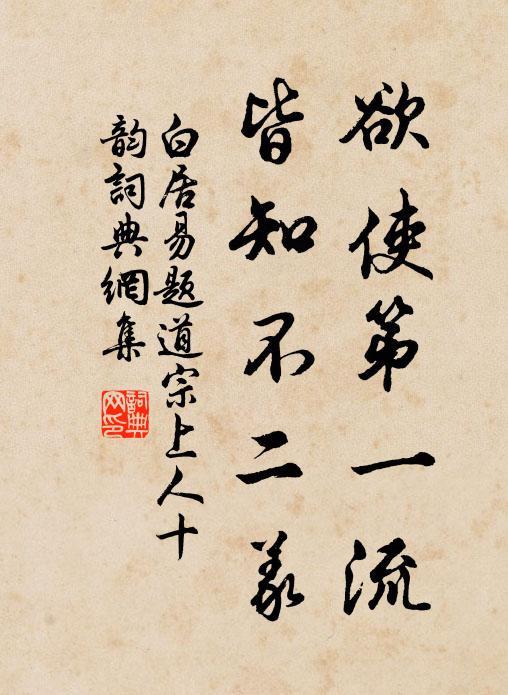 欲使第一流
皆知不二義
白居易題道宗上人十
韵詞典網集
詞典
网印